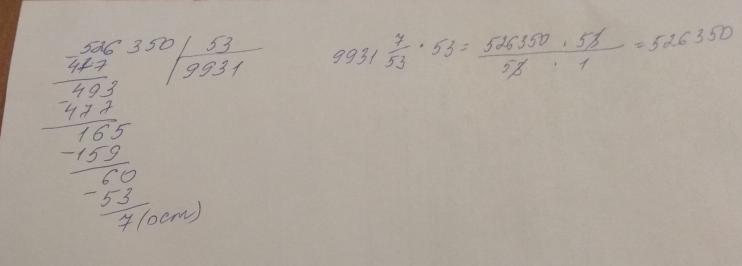 526350 | 53
- 477 | 9931
493
- 477
165
- 159
60
- 53
7 (ост)
9931 7/53 · 53 = 526350 · 53 / 53 · 1 = 526350